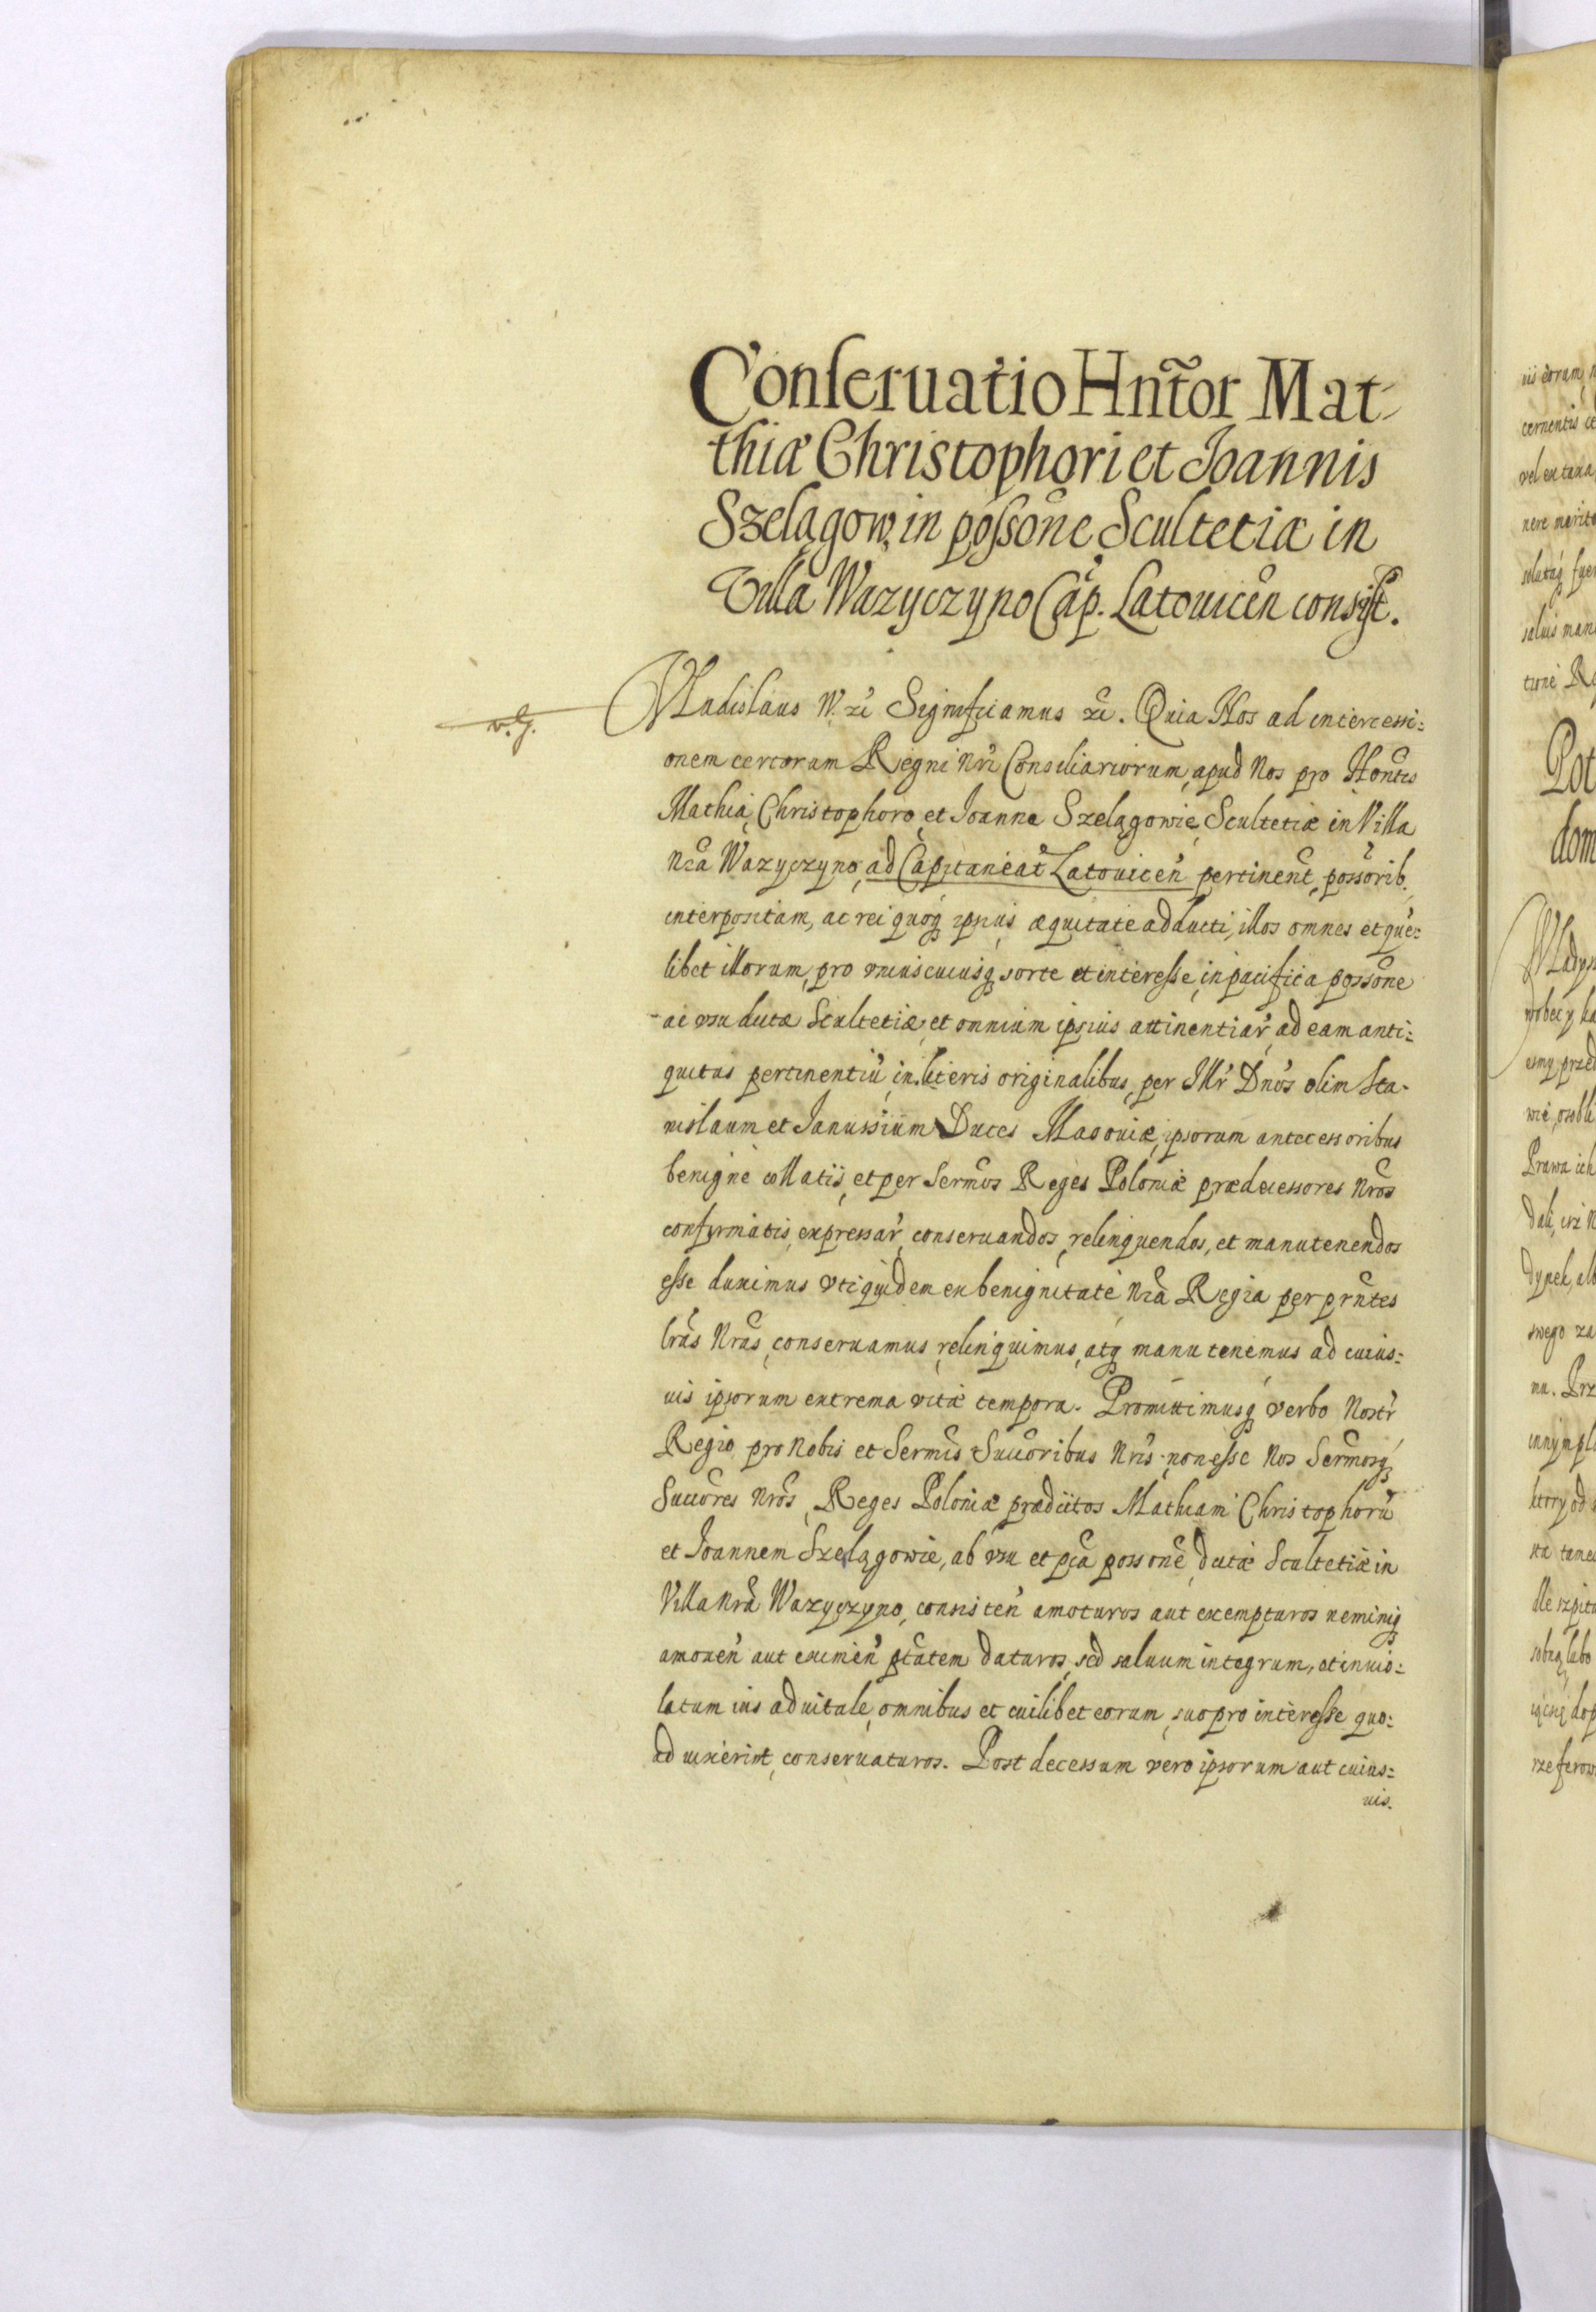 Conseruatio Hntor Mat-
thiæ Christophori et Joannis
Szelągow, in possone Scultetiæ in
Villa Wazyczyno Cap. Latouicen consist.
v. g.
Vladislaus W. zc Significamus zc. Quia Nos ad intercessi:
onem certorum Regni Nri Consiliariorum, apud Nos pro Hontis
Mathia, Christophoro, et Joanne Szelągowie, Scultetiæ in Villa
Nra Wazyczyno, ad Capitaneat Latouicen pertinent, possorib.
interpositam, ac rei quoq ipsius æquitate adducti, illos omnes et que:
libet illorum, pro vniuscuiusq sorte et interesse, in pacifica possone
ac vsu dictæ Scultetiæ, et omnium ipsius attinentiar, ad eam anti:
quitus pertinentiu, in literis originalibus, per Illr Dnos olim Sta-
nislaum et Janussium Duces Masouiæ, ipsorum antecessoribus
benigne collatis, et per Sermos Reges Poloniæ prædecessores Nros
confirmatis, expressar, conseruandos, relinquendos, et manutenendos
esse duximus vti quidem ex benignitate Nra Regia per prntes
lras Nras, conseruamus, relinquimus, atq manu tenemus ad cuius:
uis ipsorum extrema vitæ tempora. Promittimusq verbo Nostr
Regio pro Nobis et Sermis Succoribus Nris, non esse Nos Sermosq
Succores Nros, Reges Poloniæ prædictos Mathiam Christophoru
et Joannem Szelągowie, ab vsu et pca possone, dictæ Scultetiæ in
Villa Nra Wazyczyno, consisten amoturos aut exempturos neminiq
amouen aut eximen ptatem daturos, sed saluum integrum, et inuio:
latum ius aduitale, omnibus et cuilibet eorum, suo pro interesse quo:
ad uixerint, conseruaturos. Post decessum vero ipsorum aut cuius:
uis.